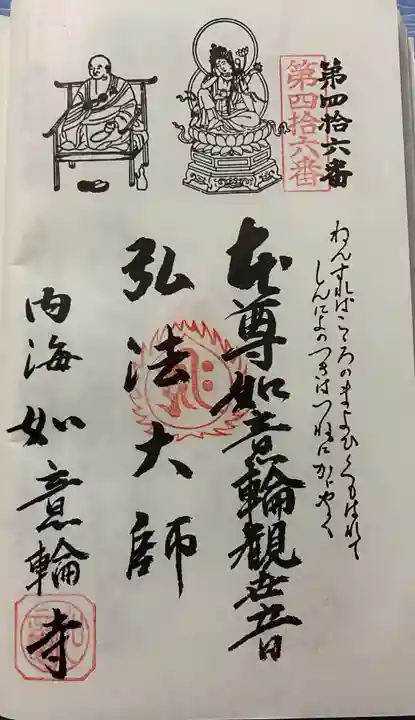 第四拾六番
第四拾六番
ねんずればこころのまよひくもはれて
しんによのつきはつねにかゞやく
本尊如意輪観世音
弘法大師
内海如意輪寺